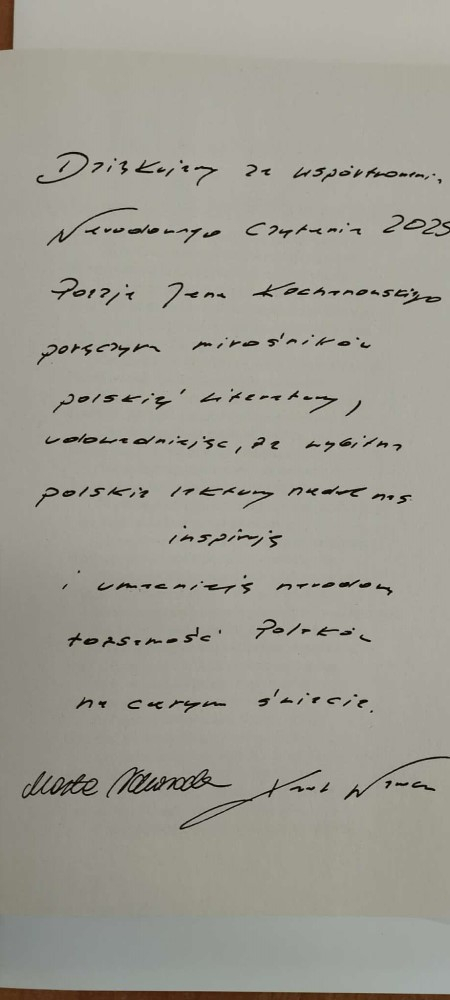 Dziękujemy za współtworzenie
Narodowego Czytania 2025
Poezja Jana Kochanowskiego
połączyła miłośników
polskiej literatury,
udowadniając, że wybitne
polskie lektury nadal nas
inspirują
i umacniają narodową
tożsamość Polaków
na całym świecie.
Marta Nawrocka Karol Nawrocki